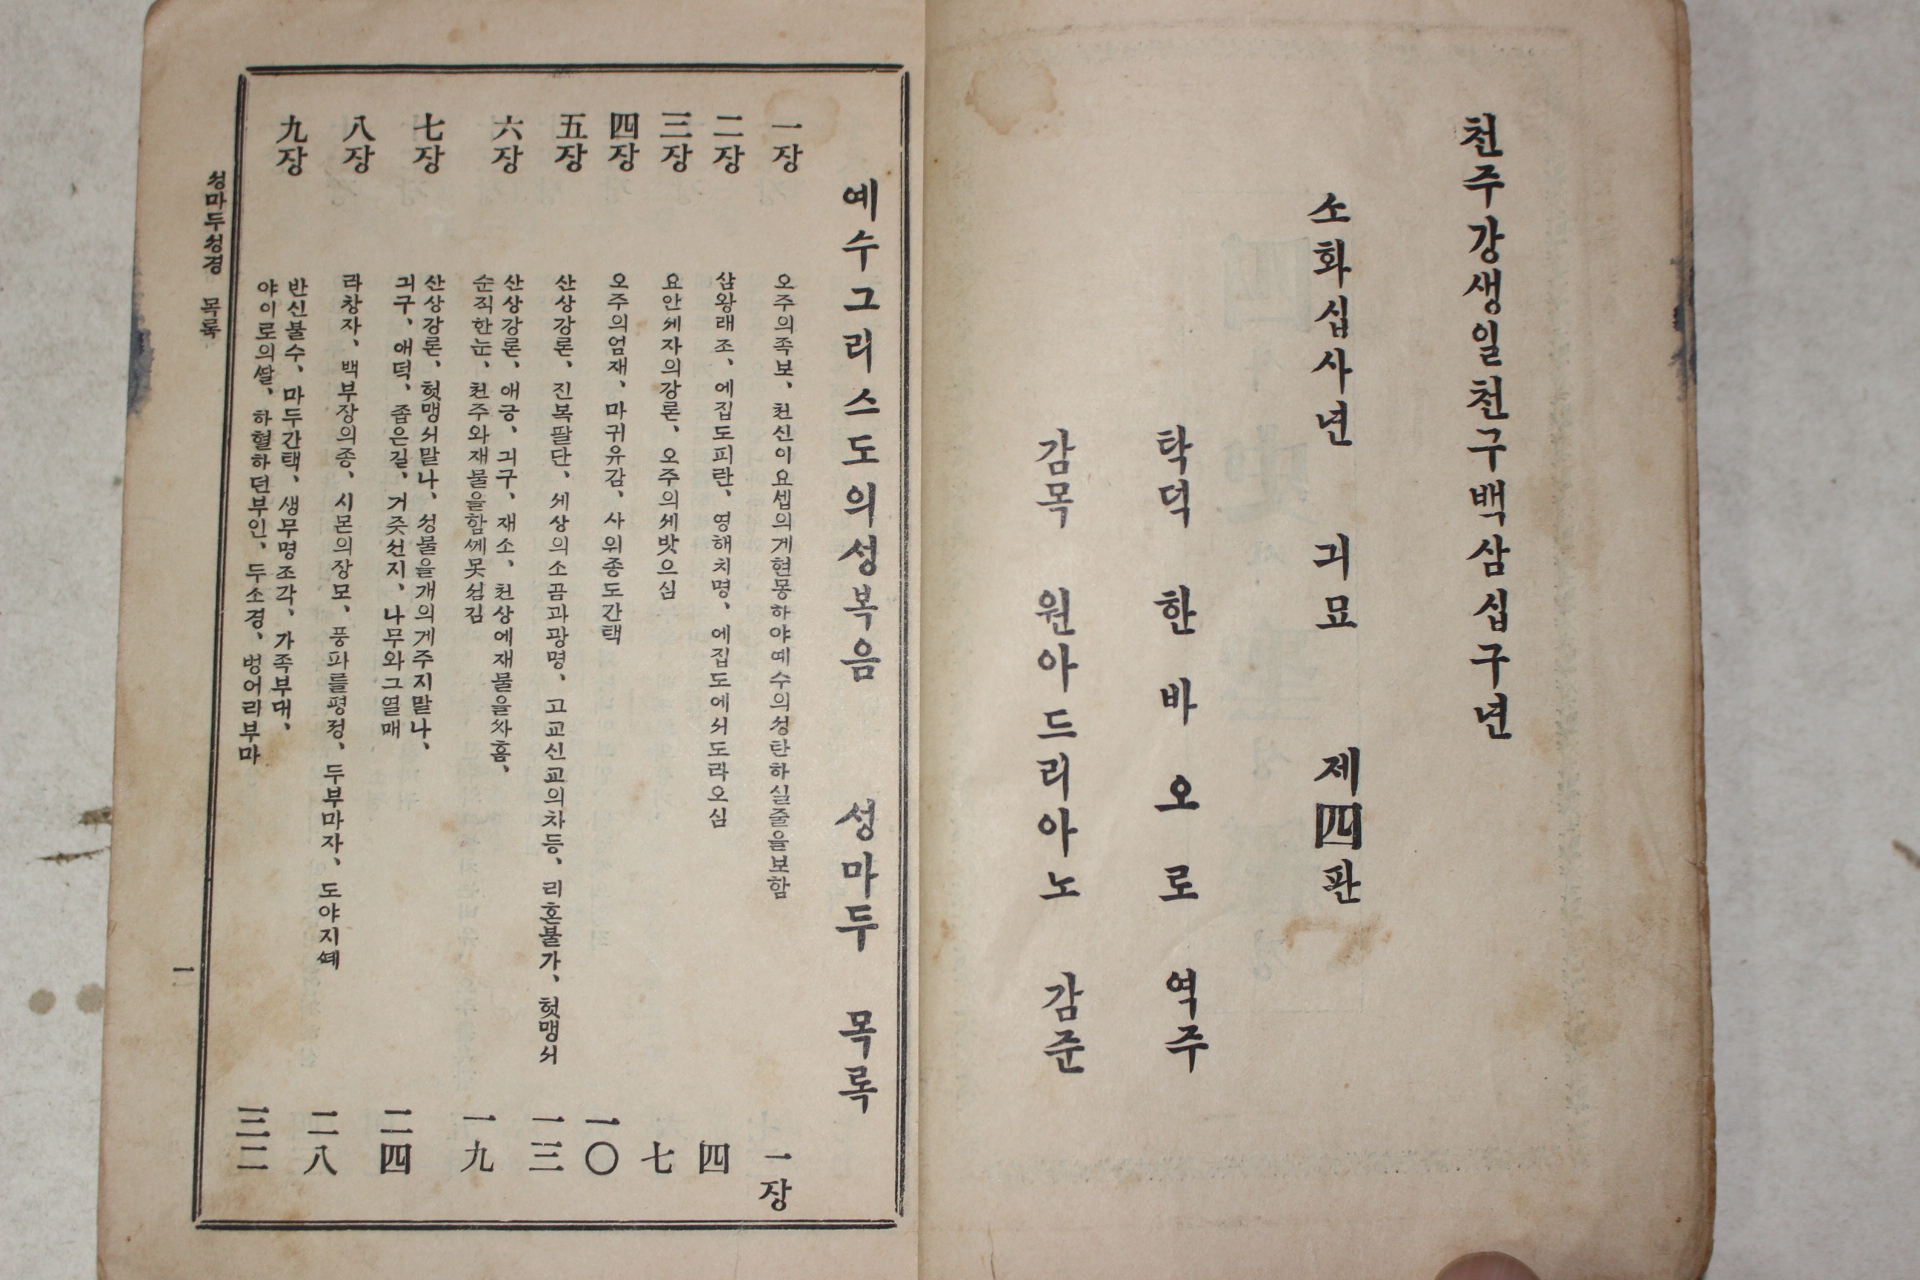 천주강생일천구백삼십구년
소화십사년 긔묘 제四판
탁덕 한바오로 역주
감목 원아드리아노 감준
예수그리스도의성복음 성마두 목록
一장 오주의족보、천신이요셉의게현몽하야예수의성탄하실줄을보함 一장
二장 삼왕래조、에집도피란、영해치명、에집도에서도라오심 四
三장 요안세자의강론、오주의세밧으심 七
四장 오주의엄재、마귀유감、사위종도간택 一〇
五장 산상강론、진복팔단、세상의소곰과광명、고교신교의차등、리혼불가、헛맹서 一三
六장 산상강론、애긍、긔구、재소、천상에재물을싸흠、
순직한눈、천주와재물을함께못섬김 一九
七장 산상강론、헛맹서말나、성물을개의게주지말나、
긔구、애덕、좁은길、거즛선지、나무와그열매 二四
八장 라창자、백부장의종、시몬의장모、풍파를평정、두부마자、도야지떼 二八
九장 반신불수、마두간택、생무명조각、가족부대、
야이로의딸、하혈하던부인、두소경、벙어리부마 三二
성마두성경 목록
一